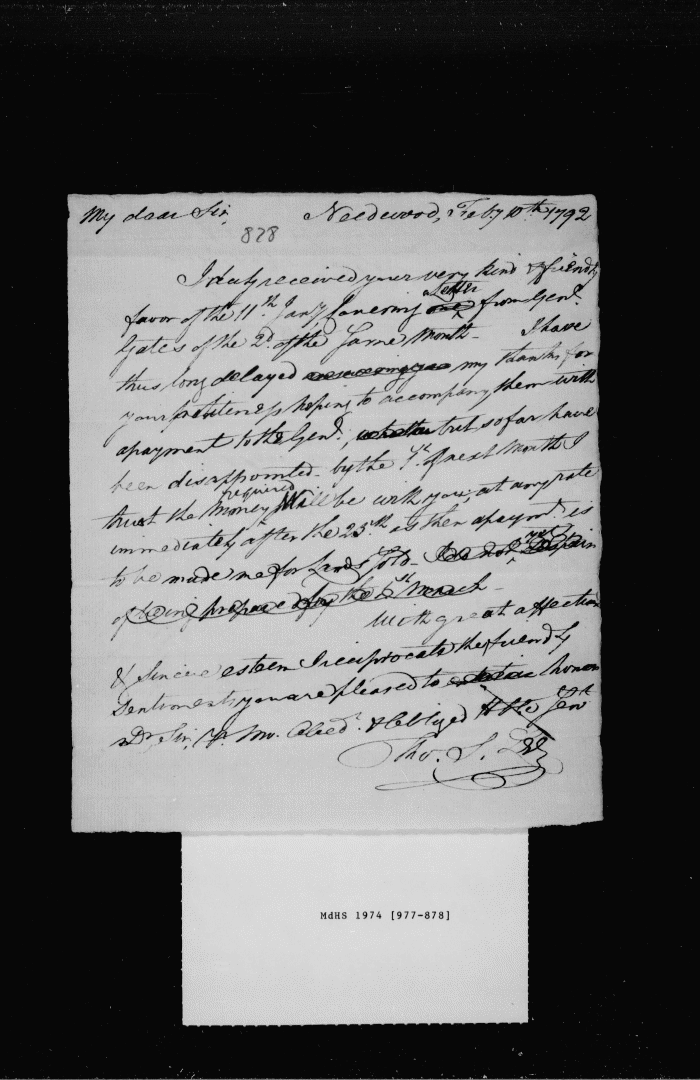 My dear Sir, Needwood, Feby 10th 1792
828
I duly received your very kind & friendly
Letter
favor of the 11th Jany from Genl.
Gates of the 2d. of the Same Month - I have
thus long delayed my thanks for
your politeness hoping to accompany them with
a payment to the Genl, whether but so far have
been disappointed. by the 1st. of next Month I
required
trust the Money Will be with you, at any rate
immediately after the 25th as then a paymt. is
to be made me for Lands Sold - do not Despair
of being prepared by the 1st March -
With great affection
& Sincere esteem I reciprocate the friendly
Sentiments you are pleased to honor
Dr. Sir, Yr. Mo. Obedt. & Obliged Hble Servt
Tho. S. Lee
MdHS 1974 [977-878]